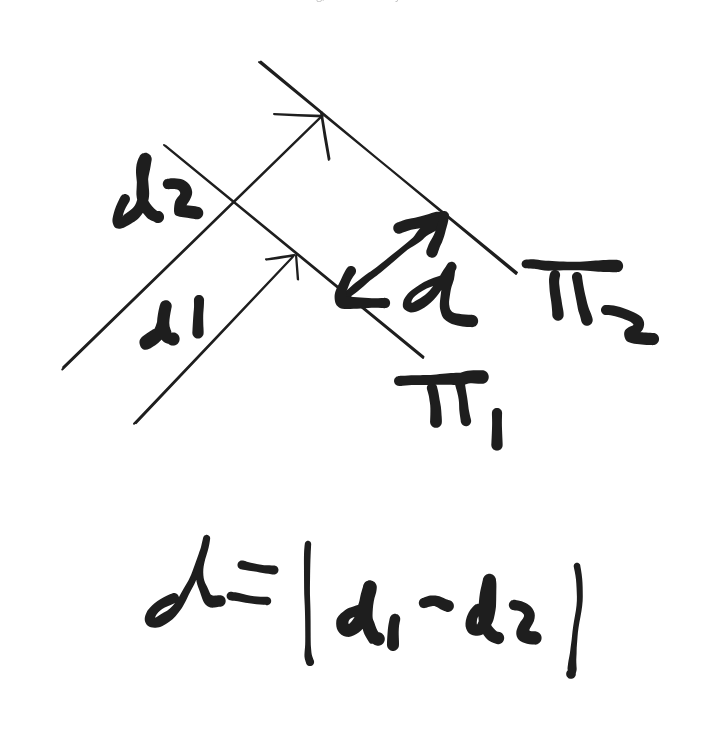 d2
d1
d
π₂
π₁
d=|d₁-d₂|